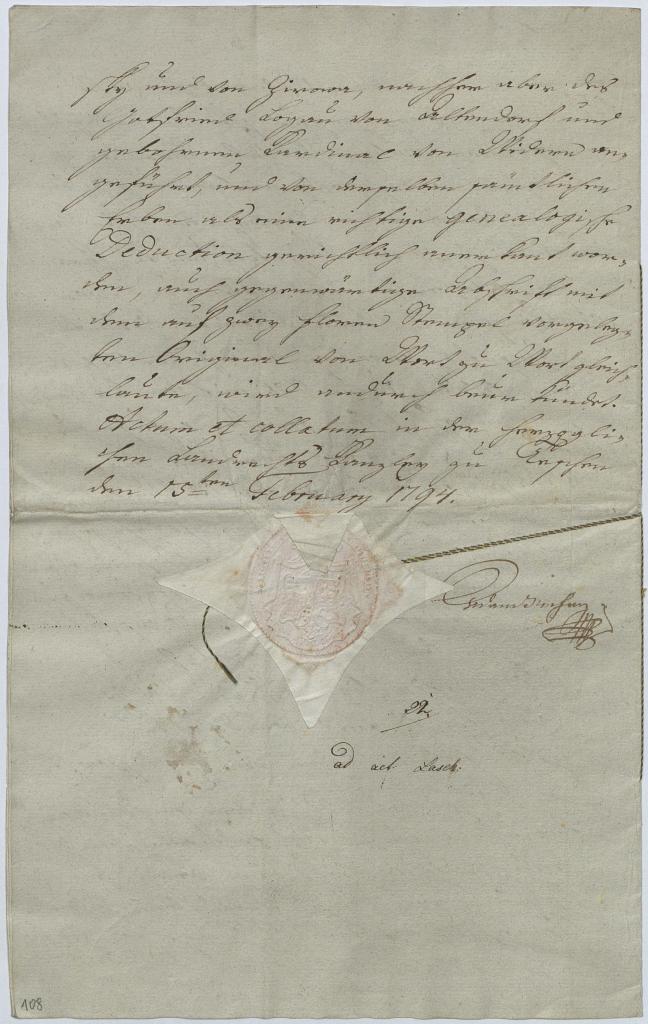 sky und von Zirowa, nachher aber des
Gottfried Logau von Altendorf und
gebohrnen Kardinal von Widern an-
geführt, und von derselben sämtlichen
Erben als eine richtige genealogische
Deduction gerichtlich anerkant wor-
den, auch gegenwärtige Abschrift mit
dem auf zwey Floren Stempel vorgeleg-
ten Original von Wort zu Wort gleich-
laute, wird andurch beurkundet.
Actum et collatum in der herzogli-
chen Landrechts Kanzley zu Teschen
den 15ten February 1794.
22.
ad act.
108